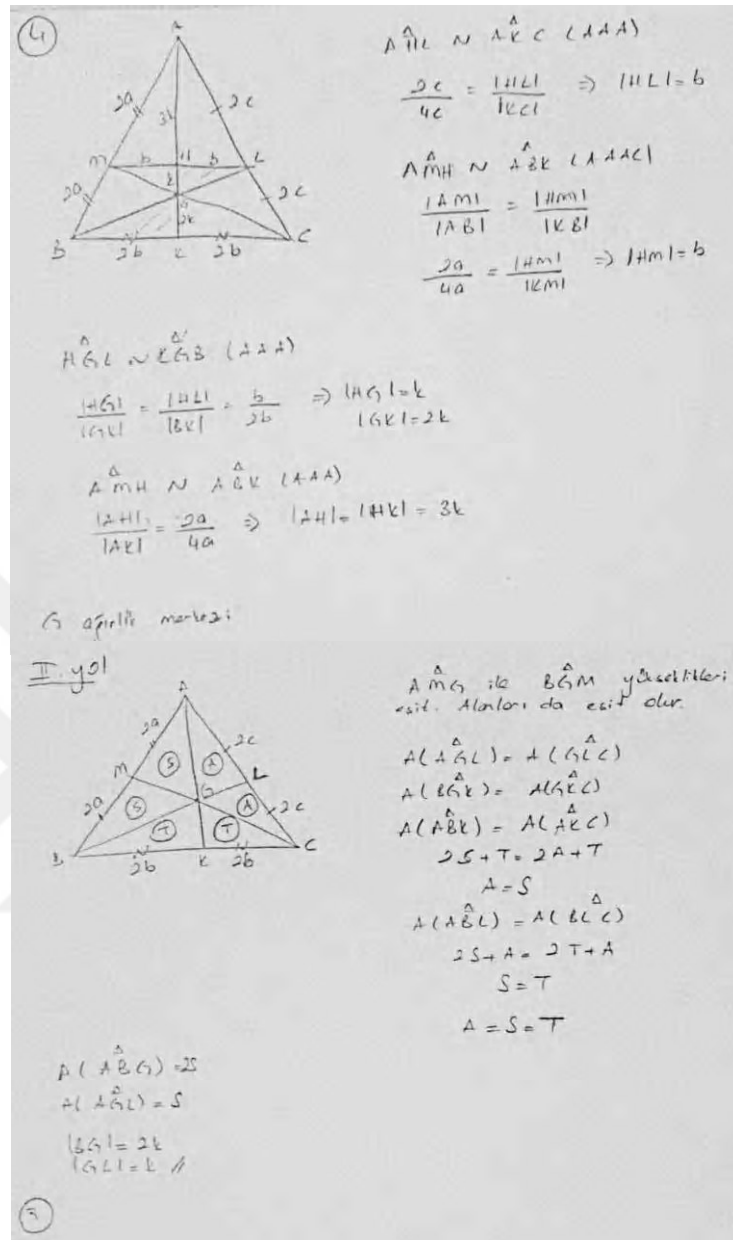 4
A
2a
3k
2c
M
b
H
b
L
2a
k
G
2c
2k
B
2b
K
2b
C
AHL ~ AKC (AAA)
2c/4c = |HL|/|KC| ⇒ |HL| = b
AMH ~ ABK (AAA)
|AM|/|AB| = |HM|/|KB|
2a/4a = |HM|/|KM| ⇒ |HM| = b
HGL ~ KGB (AAA)
|HG|/|GK| = |HL|/|BK| = b/2b ⇒ |HG| = k
|GK| = 2k
AMH ~ ABK (AAA)
|AH|/|AK| = 2a/4a ⇒ |AH| = |HK| = 3k
G ağırlık merkezi
II. yol
A
2a
2c
M
S
A
L
G
2a
S
A
2c
T
T
B
2b
K
2b
C
AMG ile BGM yükseklikleri
eşit. Alanları da eşit olur.
A(AGL) = A(GLC)
A(BGK) = A(GKC)
A(ABK) = A(AKC)
2S + T = 2A + T
A = S
A(ABL) = A(BLC)
2S + A = 2T + A
S = T
A = S = T
A(ABG) = 2S
A(AGL) = S
|BG| = 2k
|GL| = k //